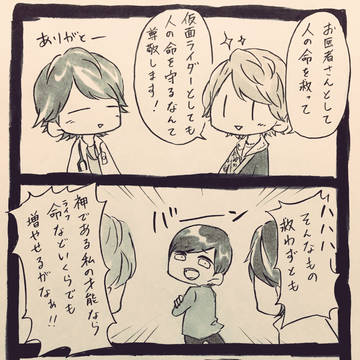 お医者さんとして
人の命を救って
仮面ライダーとしても
人の命を守るなんて
尊敬します！
ありがとー
ハハハハ
そんなもの
救わずとも
バーン
神である私の才能なら
命などいくらでも
ライフ
増やせるがなぁ!!